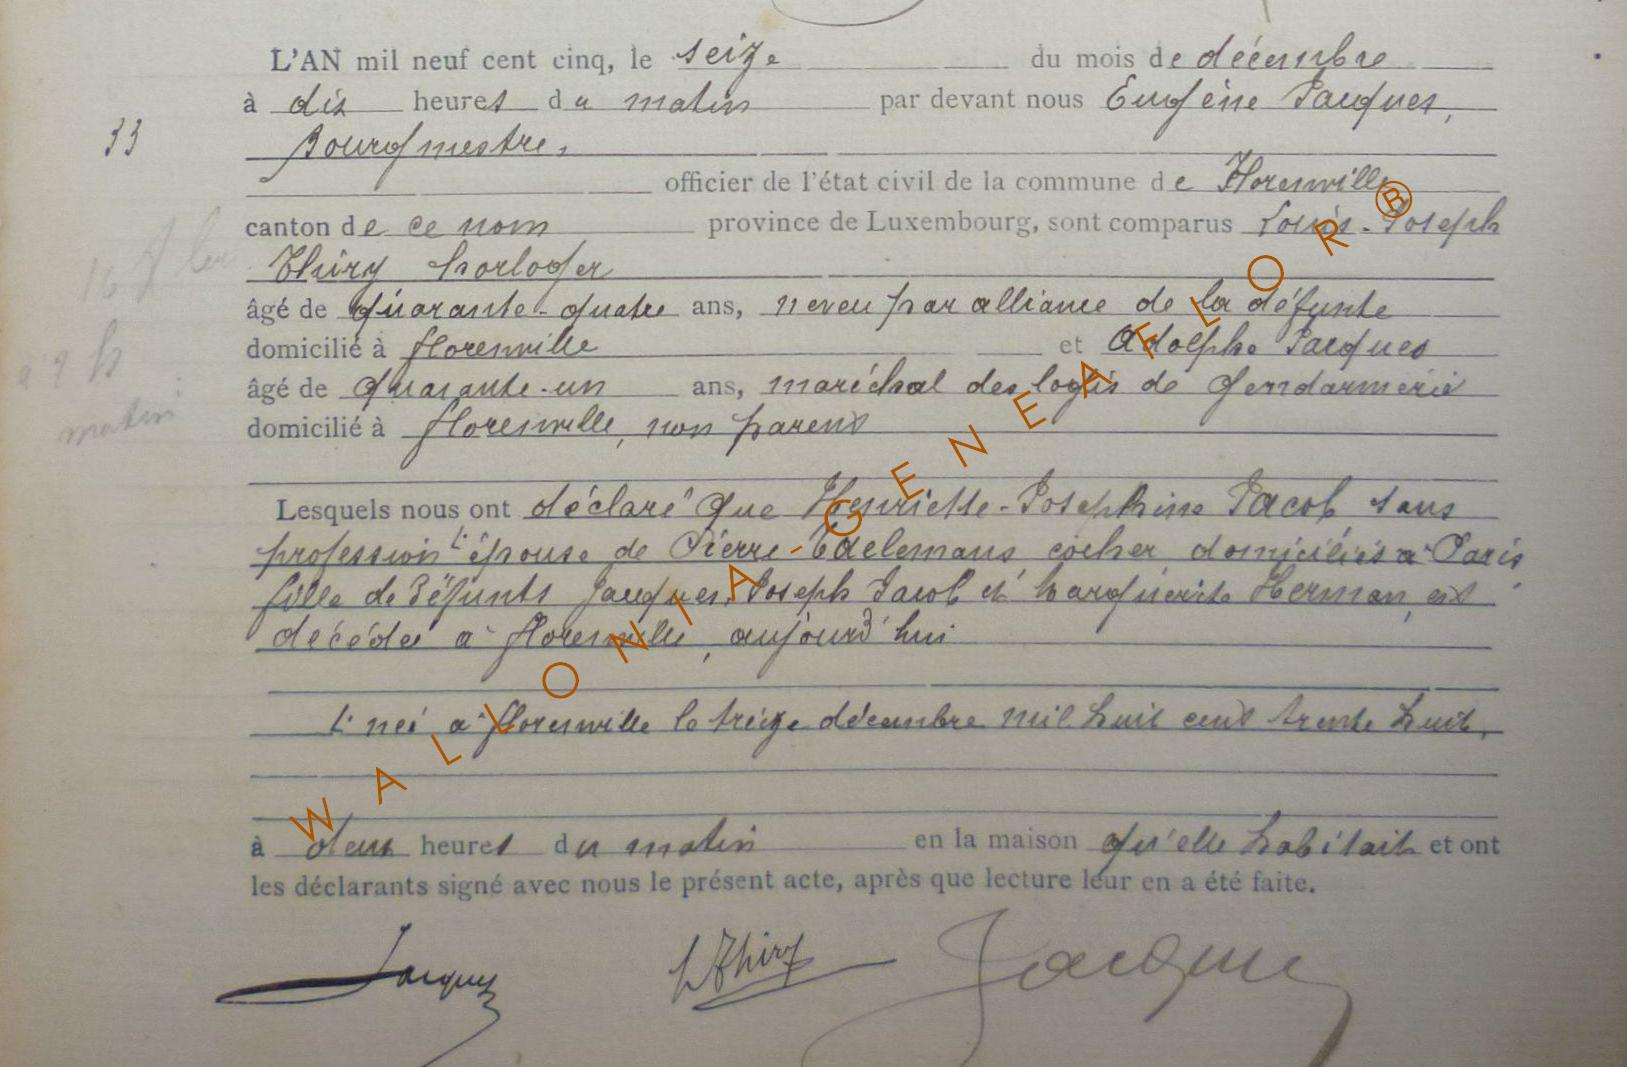 L'AN mil neuf cent cinq, le seize du mois de décembre
à dix heures du matin par devant nous Eugène Jacques,
33
Bourgmestre,
officier de l'état civil de la commune de Florenville
canton de ce nom province de Luxembourg, sont comparus Louis-Joseph
Thiry horloger
âgé de quarante-quatre ans, neveu par alliance de la défunte
domicilié à florenville et Adolphe Jacques
âgé de quarante-un ans, maréchal des logis de gendarmerie
domicilié à florenville, non parent
16
matin
Lesquels nous ont déclaré que Henriette-Joséphine Jacob sans
profession L. épouse de Pierre Edelemans cocher domiciliés à Paris,
fille de défunts Jacques-Joseph Jacob et Marguerite Herman, est
décédée à florenville, aujourd'hui
L. née à florenville le treize décembre mil huit cent trente huit,
à deux heures du matin en la maison qu'elle habitait et ont
les déclarants signé avec nous le présent acte, après que lecture leur en a été faite.
Jacques LThiry Jacques
WALLONIA-GENEAFLOR®